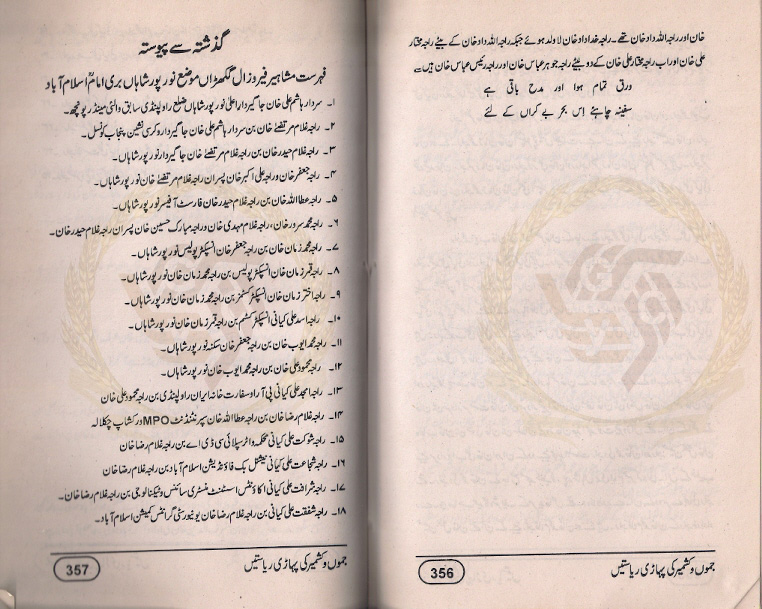 خان اور راجہ اللہ داد خان تھے۔ راجہ خداداد خان لا ولد ہوئے جبکہ راجہ اللہ داد خان کے بیٹے راجہ مختار
علی خان اور اب راجہ مختار علی خان کے دو بیٹے راجہ جوہر عباس خان اور راجہ رئیس عباس خان ہیں۔
ورق تمام ہوا اور مدح باقی ہے
سفینہ چاہئے اس بحر بے کراں کے لئے
جموں و کشمیر کی پہاڑی ریاستیں
356
گذشتہ سے پیوستہ
فہرست مشاہیر فیروزال گکھڑاں موضع نور پور شاہاں بری امامؒ اسلام آباد
۱۔ سردار ہاشم علی خان جاگیردار اعلیٰ نور پور شاہاں ضلع راولپنڈی سابق والئی مینڈر پونچھ۔
۲۔ راجہ غلام مرتضےٰ خان بن سردار ہاشم علی خان جاگیردار و کرسی نشین پنجاب کونسل۔
۳۔ راجہ غلام حیدر خان بن راجہ غلام مرتضےٰ خان جاگیردار نور پور شاہاں۔
۴۔ راجہ جعفر خان و راجہ علی اکبر خان پسران راجہ غلام مرتضےٰ خان نور پور شاہاں۔
۵۔ راجہ عطا اللہ خان بن راجہ غلام حیدر خان فارسٹ آفیسر نور پور شاہاں۔
۶۔ راجہ محمد سرور خان، راجہ غلام مہدی خان و راجہ مبارک حسین خان پسران راجہ غلام حیدر خان۔
۷۔ راجہ محمد زمان خان بن راجہ جعفر خان انسپکٹر پولیس نور پور شاہاں۔
۸۔ راجہ قمر زمان خان انسپکٹر پولیس بن راجہ محمد زمان خان نور پور شاہاں۔
۹۔ راجہ اختر زمان خان انسپکٹر کسٹمز بن راجہ محمد زمان خان نور پور شاہاں۔
۱۰۔ راجہ اسد علی کیانی انسپکٹر کسٹم بن راجہ قمر زمان خان نور پور شاہاں۔
۱۱۔ راجہ محمد ایوب خان بن راجہ جعفر خان سکنہ نور پور شاہاں۔
۱۲۔ راجہ محمود علی خان بن راجہ محمد ایوب خان نور پور شاہاں۔
۱۳۔ راجہ امجد علی کیانی پی آر او سفارت خانہ ایران راولپنڈی بن راجہ محمود علی خان
۱۴۔ راجہ غلام رضا خان بن راجہ عطا اللہ خان سپرنٹنڈنٹ MPO ورکشاپ چکلالہ
۱۵۔ راجہ شوکت علی کیانی محکمہ واٹر سپلائی سی ڈی اے بن راجہ غلام رضا خان
۱۶۔ راجہ شجاعت علی کیانی نیشنل بک فاؤنڈیشن اسلام آباد بن راجہ غلام رضا خان
۱۷۔ راجہ شرافت علی کیانی اکاؤنٹس اسسٹنٹ منسٹری سائنس و ٹیکنالوجی بن راجہ غلام رضا خان۔
۱۸۔ راجہ شفقت علی کیانی بن راجہ غلام رضا خان یونیورسٹی گرانٹس کمیشن اسلام آباد۔
جموں و کشمیر کی پہاڑی ریاستیں
357